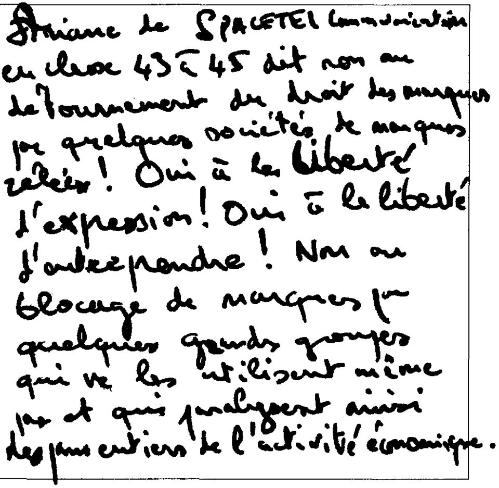 Ariane de SPACETEL Communication
en classe 43 à 45 dit non au
détournement du droit des marques
par quelques sociétés de marques
zélées! Oui à la liberté
d'expression! Oui à la liberté
d'entreprendre! Non au
blocage de marques par
quelques grands groupes
qui ne les utilisent même
pas et qui paralysent ainsi
des pans entiers de l'activité économique.